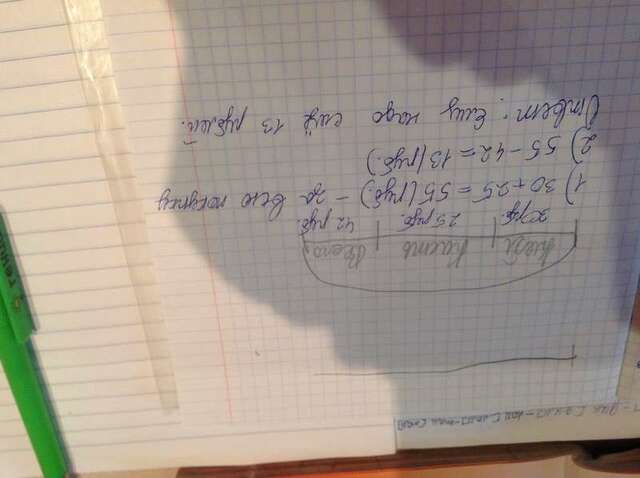 Всего
30 руб. 25 руб. 42 руб.
1) 30+25=55(руб.) – за всю покупку
2) 55-42=13(руб.)
Ответ: Ему надо ещё 13 рублей.